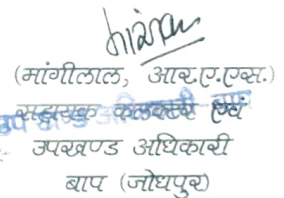 (मांगीलाल, आर.ए.एस.)
सहायक कलक्टर एवं
उपखण्ड अधिकारी
बाप (जोधपुर)